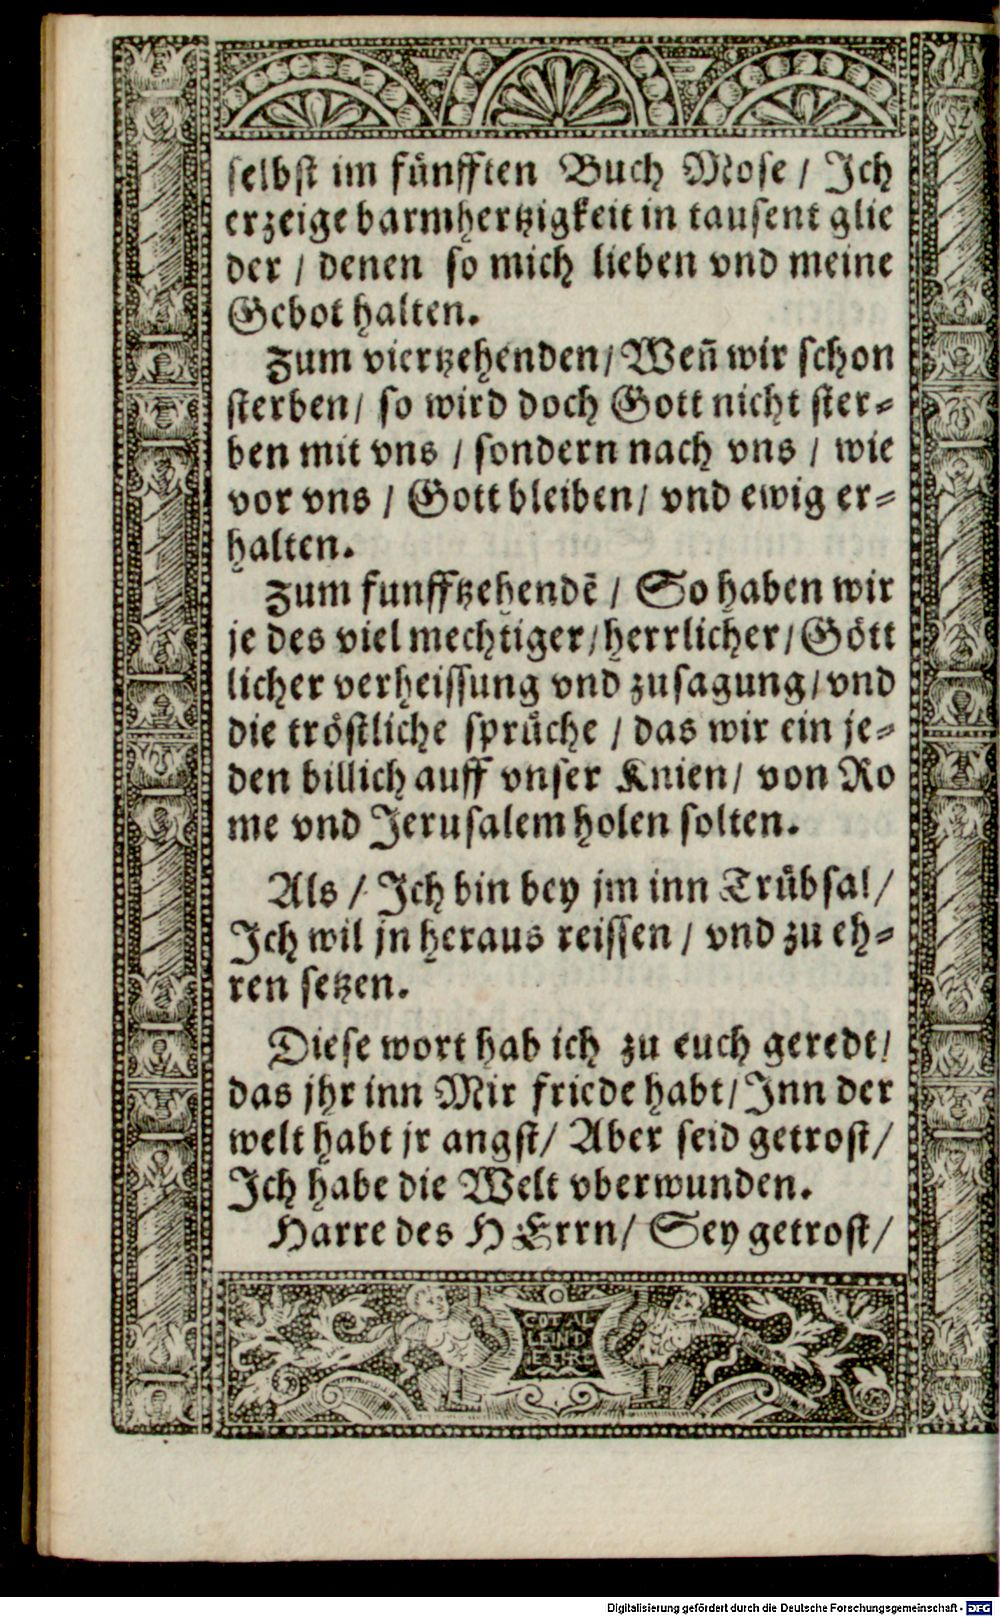 selbst im fünfften Buch Mose / Ich
erzeige barmhertzigkeit in tausent glie
der / denen so mich lieben vnd meine
Gebot halten.
Zum viertzehenden / Weñ wir schon
sterben / so wird doch Gott nicht ster-
ben mit vns / sondern nach vns / wie
vor vns / Gott bleiben / vnd ewig er-
halten.
Zum funfftzehendē / So haben wir
je des viel mechtiger / herrlicher / Gött
licher verheissung vnd zusagung / vnd
die tröstliche sprüche / das wir ein je-
den billich auff vnser Knien / von Ro
me vnd Jerusalem holen solten.
Als / Ich bin bey jm inn Trübsal /
Ich wil jn heraus reissen / vnd zu eh-
ren setzen.
Diese wort hab ich zu euch geredt /
das jhr inn Mir friede habt / Inn der
welt habt jr angst / Aber seid getrost /
Ich habe die Welt vberwunden.
Harre des HErrn / Sey getrost /
GOT AL
LEIN D
EERE
Digitalisierung gefördert durch die Deutsche Forschungsgemeinschaft - DFG